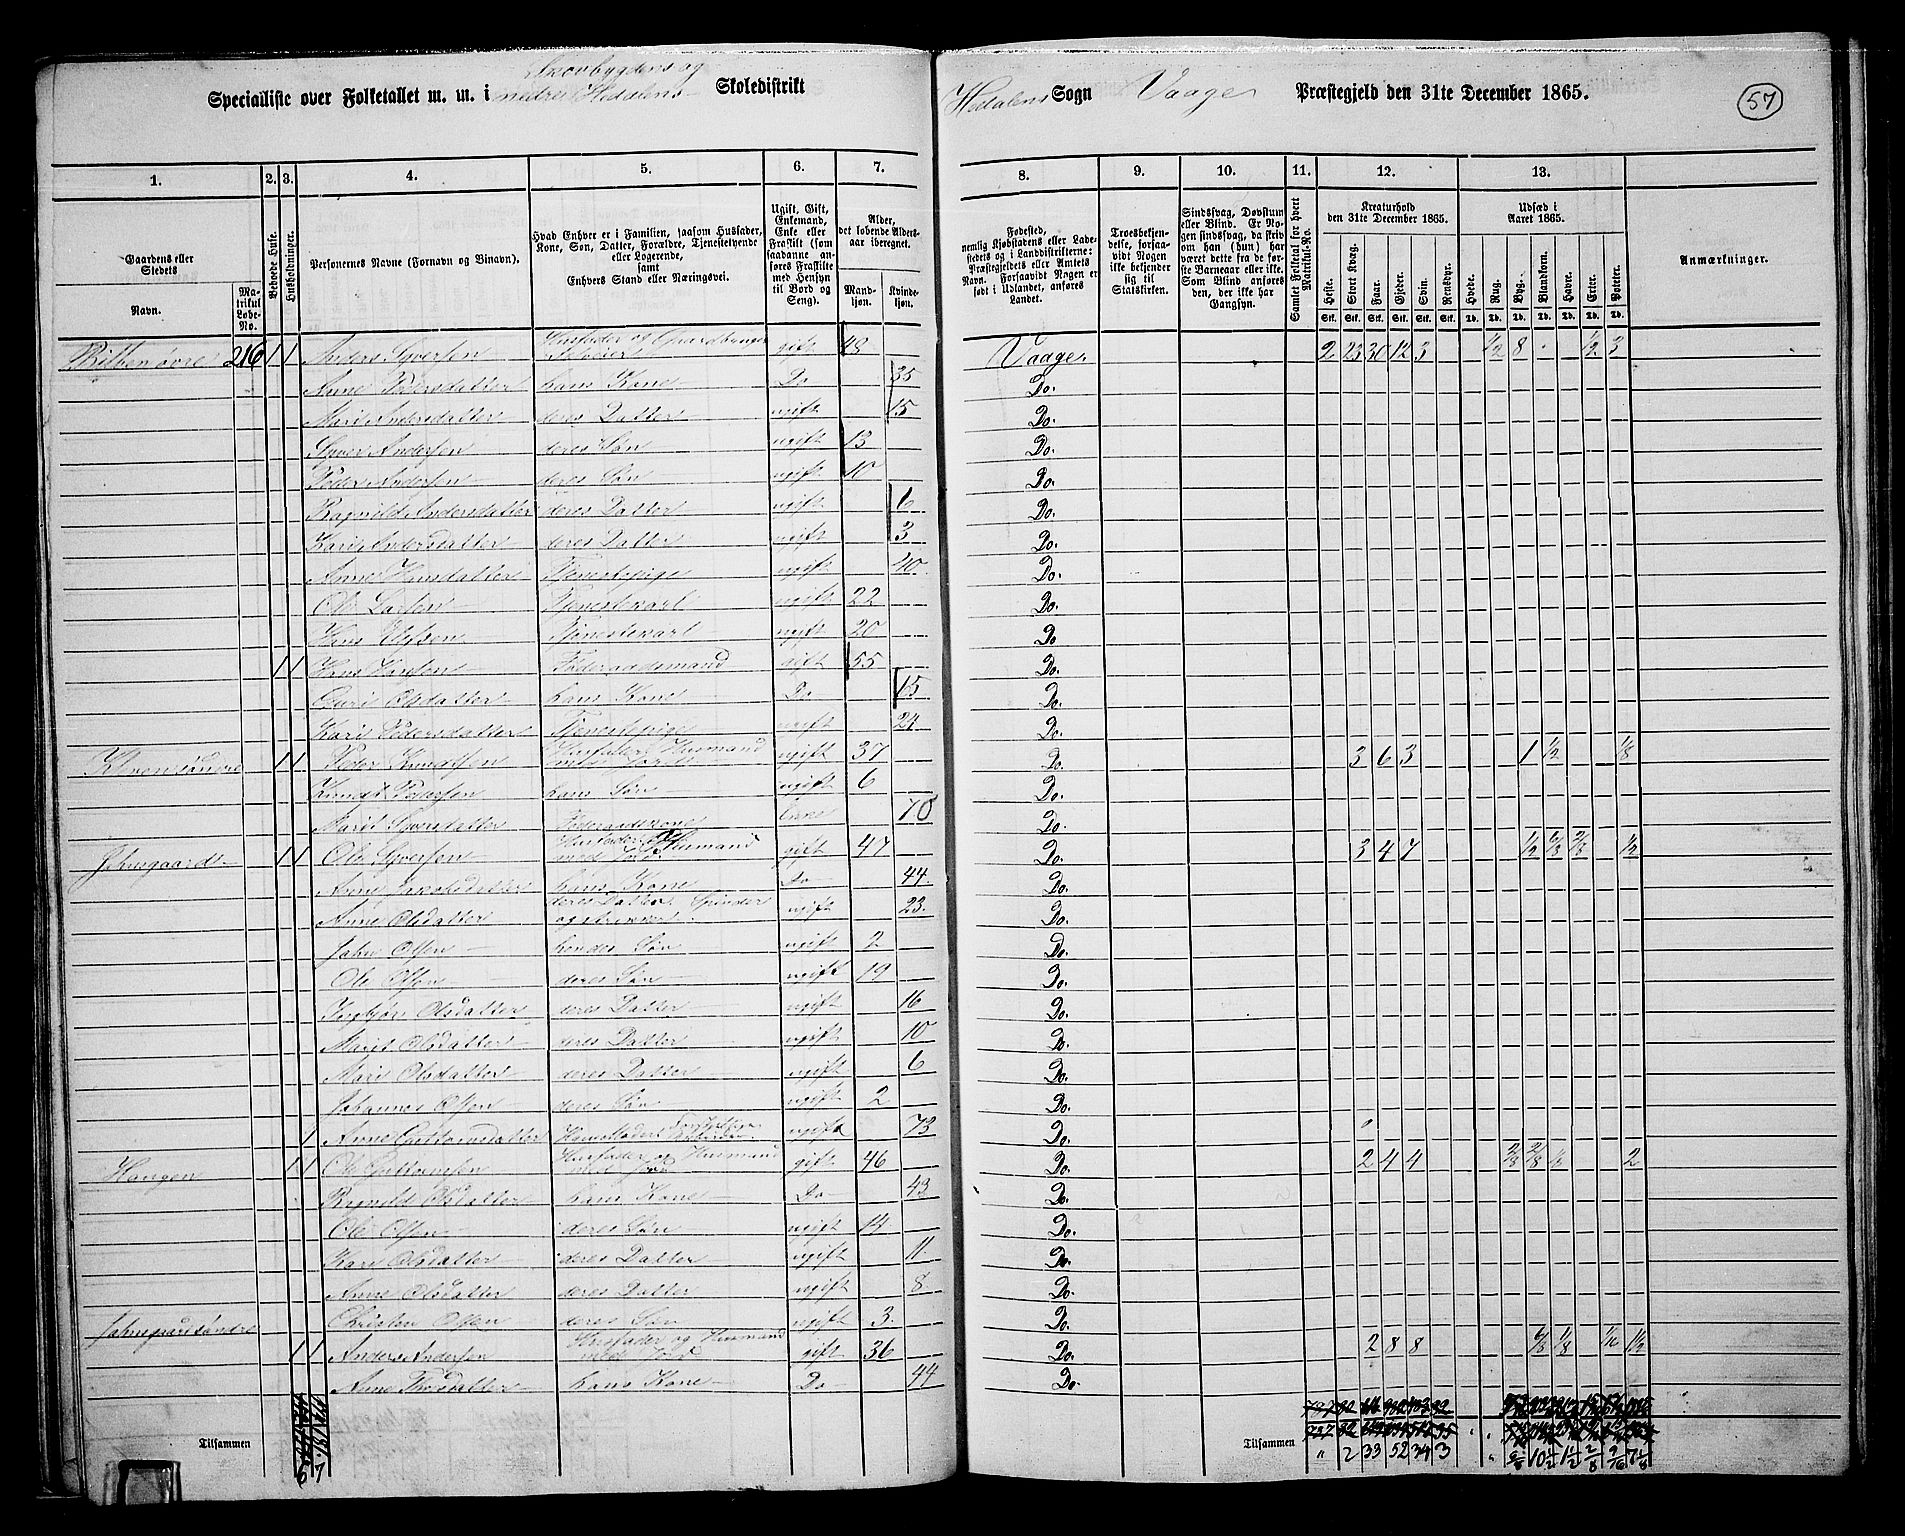 Skovbygdens og
Specialliste over Folketallet m. m. i nedre Hedalens Skoledistrikt Hedalens Sogn Vaage Præstegjeld den 31te December 1865. 57
1. 2. 3. 4. 5. 6. 7. 8. 9. 10. 11. 12. 13.
Gaardens eller Stedets
Navn.
Matrikul Løbe-No.
Beboede Huse.
Husholdninger.
Personernes Navne (Fornavn og Binavn).
Hvad Enhver er i Familien, saasom Husfader, Kone, Søn, Datter, Forældre, Tjenestetyende eller Logerende,
samt
Enhvers Stand eller Næringsvei.
Ugift, Gift, Enkemand, Enke eller Fraskilt (som saadanne anføres Fraskilte med Hensyn til Bord og Seng).
Alder, det løbende Aldersaar iberegnet.
Mandkjøn. Kvindekjøn.
Fødested,
nemlig Kjøbstadens eller Ladestedets og i Landdistrikterne: Præstegjeldets eller Amtets Navn. Forsaavidt Nogen er født i Udlandet, anføres Landet.
Troesbekjendelse, forsaavidt Nogen ikke bekjender sig til Statskirken.
Sindssvag, Døvstum eller Blind. Er Nogen sindssvag, da skrives om han (hun) har været dette fra de første Barneaar eller ikke. Som Blind anføres den, der ikke har Gangsyn.
Samlet Folketal for hvert Matrikul-No.
Kreaturhold den 31te December 1865.
Heste. Stort Kvæg. Faar. Gjeder. Svin. Rensdyr.
Stk. Stk. Stk. Stk. Stk. Stk.
Udsæd i Aaret 1865.
Hvede. Rug. Byg. Blandkorn. Havre. Erter. Poteter.
Td. Td. Td. Td. Td. Td. Td.
Anmærkninger.
216 1 1 Anders Syversen Husfader og Gaardbruger Selveier gift 48 Vaage 2 23 30 12 3 1/2 8 1/2 3
Anne Pedersdatter hans Kone Do 35 Do.
Marit Andersdatter deres Datter ugift 15 Do.
Syver Andersen deres Søn ugift 13 Do.
Peder Andersen deres Søn ugift 10 Do.
Ragnild Andersdatter deres Datter ugift 6 Do.
Kari Andersdatter deres Datter ugift 3 Do.
Anne Hansdatter Tjenestepige ugift 40 Do.
Ole Larsen Tjenestekarl ugift 22 Do.
Hans Olsen Tjenestekarl ugift 20 Do
1 1 Hans Hansen Føderaadsmand gift 55 Do.
Guri Olsdatter hans Kone Do Do.
Kari Pedersdatter Tjenestepige ugift 24 Do.
1 1 Peder Knudsen Husfader Husmand med Jord ugift 37 Do. 3 6 3 1 1/2 1/8
Knud Pedersen hans Søn ugift 6 Do.
Marit Syversdatter Føderaadskone Enke 70 Do.
Jahnsgaard 1 1 Ole Syversen Husfader Husmand med Jord gift 47 Do. 3 4 7 1/2
Anne hans Kone Do 44 Do.
Anne Olsdatter deres Datter Spinder og strikker ugift 23 Do.
Jahn Olsen hendes Søn ugift 2 Do.
Ole Olsen deres Søn ugift 19 Do.
Ingebjør Olsdatter deres Datter ugift 16 Do.
Marit Olsdatter deres Datter ugift 10 Do.
Mari Olsdatter deres Datter ugift 6 Do.
Johannes Olsen deres Søn ugift 2 Do.
1 Anne Guttormsdatter ugift 73 Do.
Haugen 1 1 Ole Guttormsen Husfader og Husmand med Jord gift 46 Do. 2 4 4 2
Ragnild Olsdatter hans Kone Do 43 Do.
Ole Olsen deres Søn ugift 14 Do.
Kari Olsdatter deres Datter ugift 11 Do.
Anne Olsdatter deres Datter ugift 8 Do.
Christen Olsen deres Søn ugift 3 Do.
Jahnsgaard søndre 1 1 Anders Andersen Husfader og Husmand med Jord gift 36 Do. 2 8 8 1/8 1/16
Anne hans Kone Do 44 Do.
Tilsammen 6 7 Tilsammen " 2 33 52 34 3